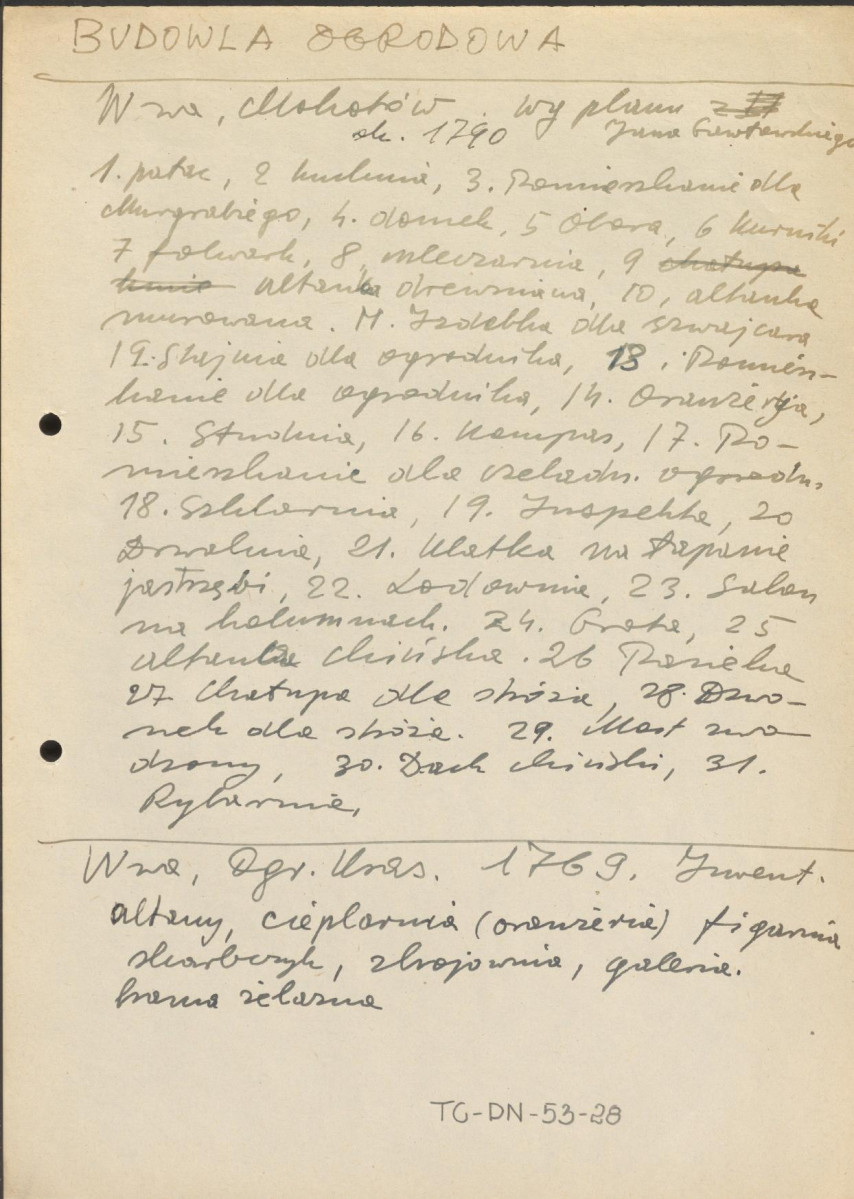 BUDOWLA OGRODOWA
Wwa, Mokotów. wg planu
ok. 1790 Jana
1. pałac, 2 kuchnia, 3. Pomieszkanie dla
Murgrabiego, 4. domek, 5 Obora, 6 Kurniki
7 folwark, 8, mleczarnia, 9 chałupa
altanka drewniana, 10, altanka
murowana. 11. Izdebka dla szwajcara
19. Stajnia dla ogrodnika, 13, Pomiesz-
kanie dla ogrodnika, 14. Oranżerja,
15. Studnia, 16. Kompas, 17. Po-
mieszkanie dla czeladn. ogrodn.
18. Szklarnia, 19. Inspekta, 20
Drwalnia, 21. Klatka na łapanie
jastrzębi, 22. Lodownia, 23. Salon
na kolumnach. 24. Grota, 25
altanka chińska. 26 Pasieka
27 Chałupa dla stróża, 28. Dzwo-
nek dla stróża. 29. Most zwo-
dzony, 30. Dach chiński, 31.
Rybarnia,
Wwa, Ogr. Kras. 1769. Inwent.
altany, cieplarnia (oranżeria) figarnia
skarbczyk, zbrojownia, galeria.
brama żelazna
TG-DN-53-28